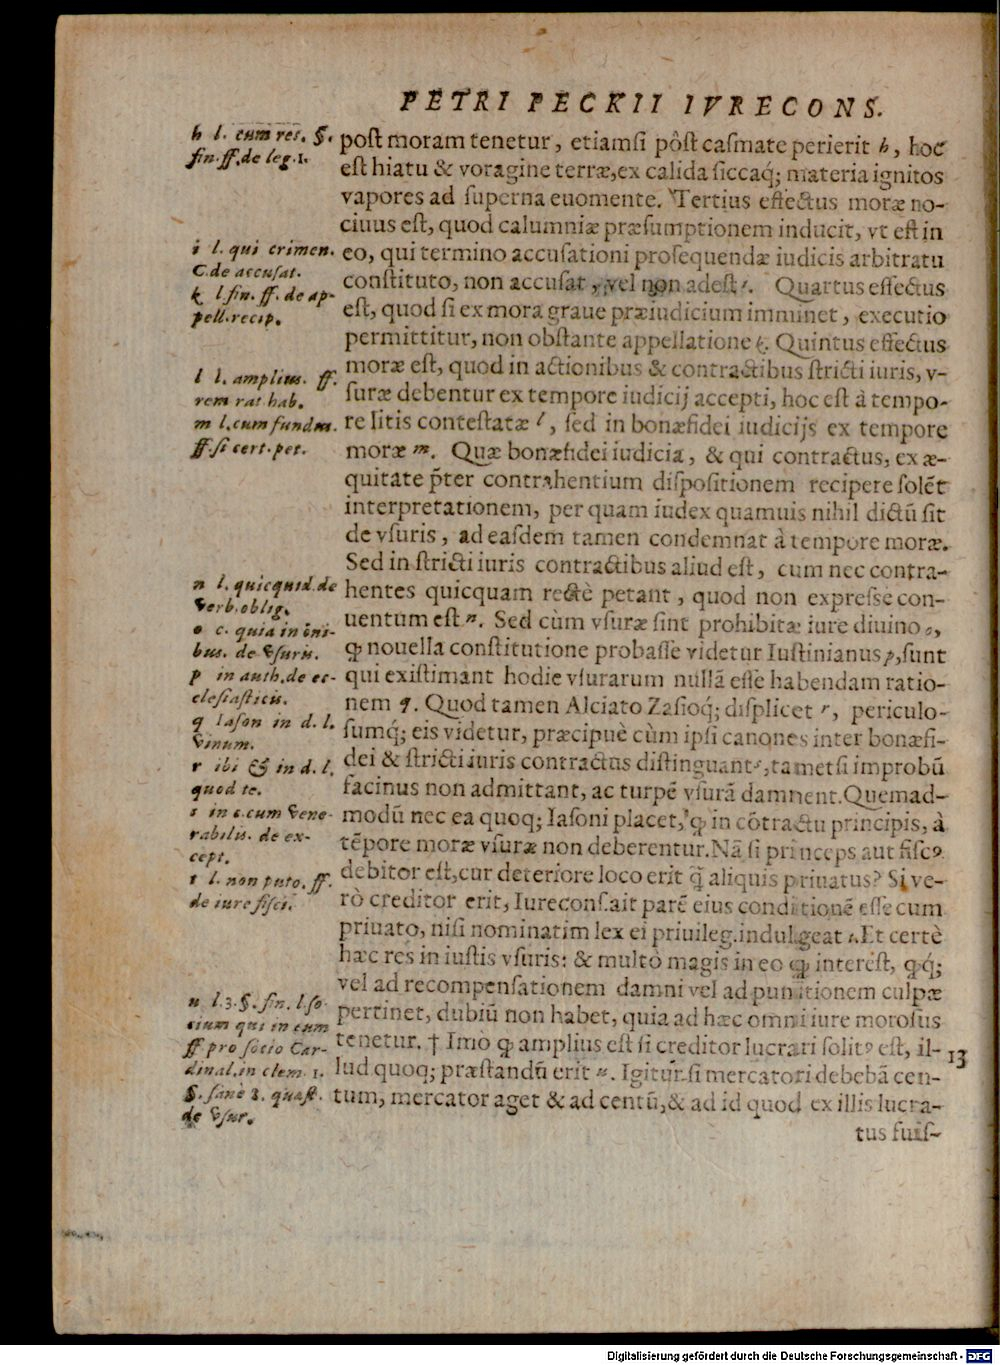 PETRI PECKII IVRECONS.
h l. cum res. §.
fin. ff. de leg. 1.
i l. qui crimen.
C. de accusat.
k l. fin. ff. de ap-
pell. recip.
l l. amplius. ff.
rem rat hab.
m l. cum fundus.
ff. si cert. pet.
n l. quicquid. de
verb. oblig.
o c. quia in oñi-
bus. de vsuris.
p in auth. de ec-
clesiasticis.
q Iason in d. l.
vinum.
r ibi & in d. l.
quod te.
s in c. cum vene-
rabilis. de ex-
cept.
t l. non puto. ff.
de iure fisci.
u l. 3. §. fin. l. so-
cium qui in eum
ff pro socio Car-
dinal. in clem. 1.
§. sanè 3. quæst.
de vsur.
post moram tenetur, etiamsi pôst casmate perierit h, hoc
est hiatu & voragine terræ, ex calida siccaq; materia ignitos
vapores ad superna euomente. Tertius effectus moræ no-
ciuus est, quod calumniæ præsumptionem inducit, vt est in
eo, qui termino accusationi prosequendæ iudicis arbitratu
constituto, non accusat, vel non adest i. Quartus effectus
est, quod si ex mora graue præiudicium imminet, executio
permittitur, non obstante appellatione k. Quintus effectus
moræ est, quod in actionibus & contractibus stricti iuris, v-
suræ debentur ex tempore iudicij accepti, hoc est à tempo-
re litis contestatæ l, sed in bonæfidei iudicijs ex tempore
moræ m. Quæ bonæfidei iudicia, & qui contractus, ex æ-
quitate p̃ter contrahentium dispositionem recipere solẽt
interpretationem, per quam iudex quamuis nihil dictũ sit
de vsuris, ad easdem tamen condemnat à tempore moræ.
Sed in stricti iuris contractibus aliud est, cum nec contra-
hentes quicquam rectè petant, quod non expresse con-
uentum est n. Sed cùm vsuræ sint prohibitæ iure diuino o,
ꝙ nouella constitutione probasse videtur Iustinianus p, sunt
qui existimant hodie vsurarum nullã esse habendam ratio-
nem q. Quod tamen Alciato Zasioq́; displicet r, periculo-
sumq́; eis videtur, præcipuè cùm ipsi canones inter bonæfi-
dei & stricti iuris contractus distinguant s, tametsi improbũ
facinus non admittant, ac turpẽ vsurã damnent. Quemad-
modũ nec ea quoq; Iasoni placet, ꝙ in cõtractu principis, à
tẽpore moræ vsuræ non deberentur. Nã si princeps aut fiscꝰ
debitor est, cur deteriore loco erit q̃ aliquis priuatus? Si ve-
rò creditor erit, Iureconsait parẽ eius conditionẽ esse cum
priuato, nisi nominatim lex ei priuileg. indulgeat t. Et certè
hæc res in iustis vsuris: & multò magis in eo ꝙ interest, ꝙq́;
vel ad recompensationem damni vel ad punitionem culpæ
pertinet, dubiũ non habet, quia ad hæc omni iure morosus
tenetur. † Imò ꝙ amplius est si creditor lucrari solitꝰ est, il-
13
lud quoq; præstandũ erit u. Igitur si mercatori debebã cen-
tum, mercator aget & ad centũ, & ad id quod ex illis lucra-
tus fuis-
Digitalisierung gefördert durch die Deutsche Forschungsgemeinschaft - DFG